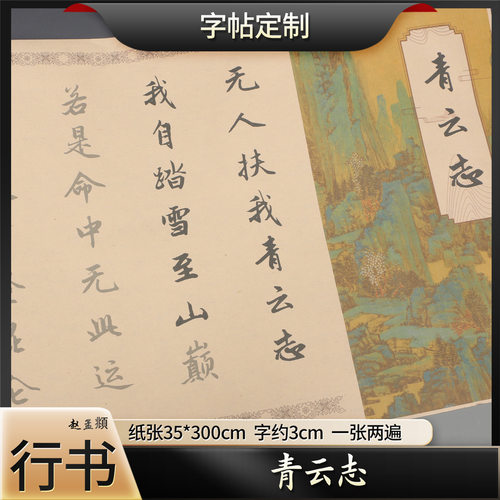 字帖定制
青云志
无人扶我青云志
我自踏雪至山巅
若是命中无此运
赵孟頫
行书
纸张35*300cm 字约3cm 一张两遍
青云志